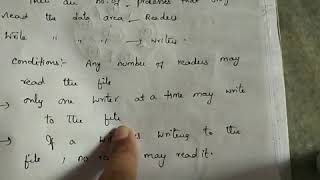 are no. of processes that only
read the data area - Readers
Write " " " → writers.
Conditions:- Any number of readers may
read the file
→ only one writer at a time may write
to the file
→ If a writing to the
file, no may read it.